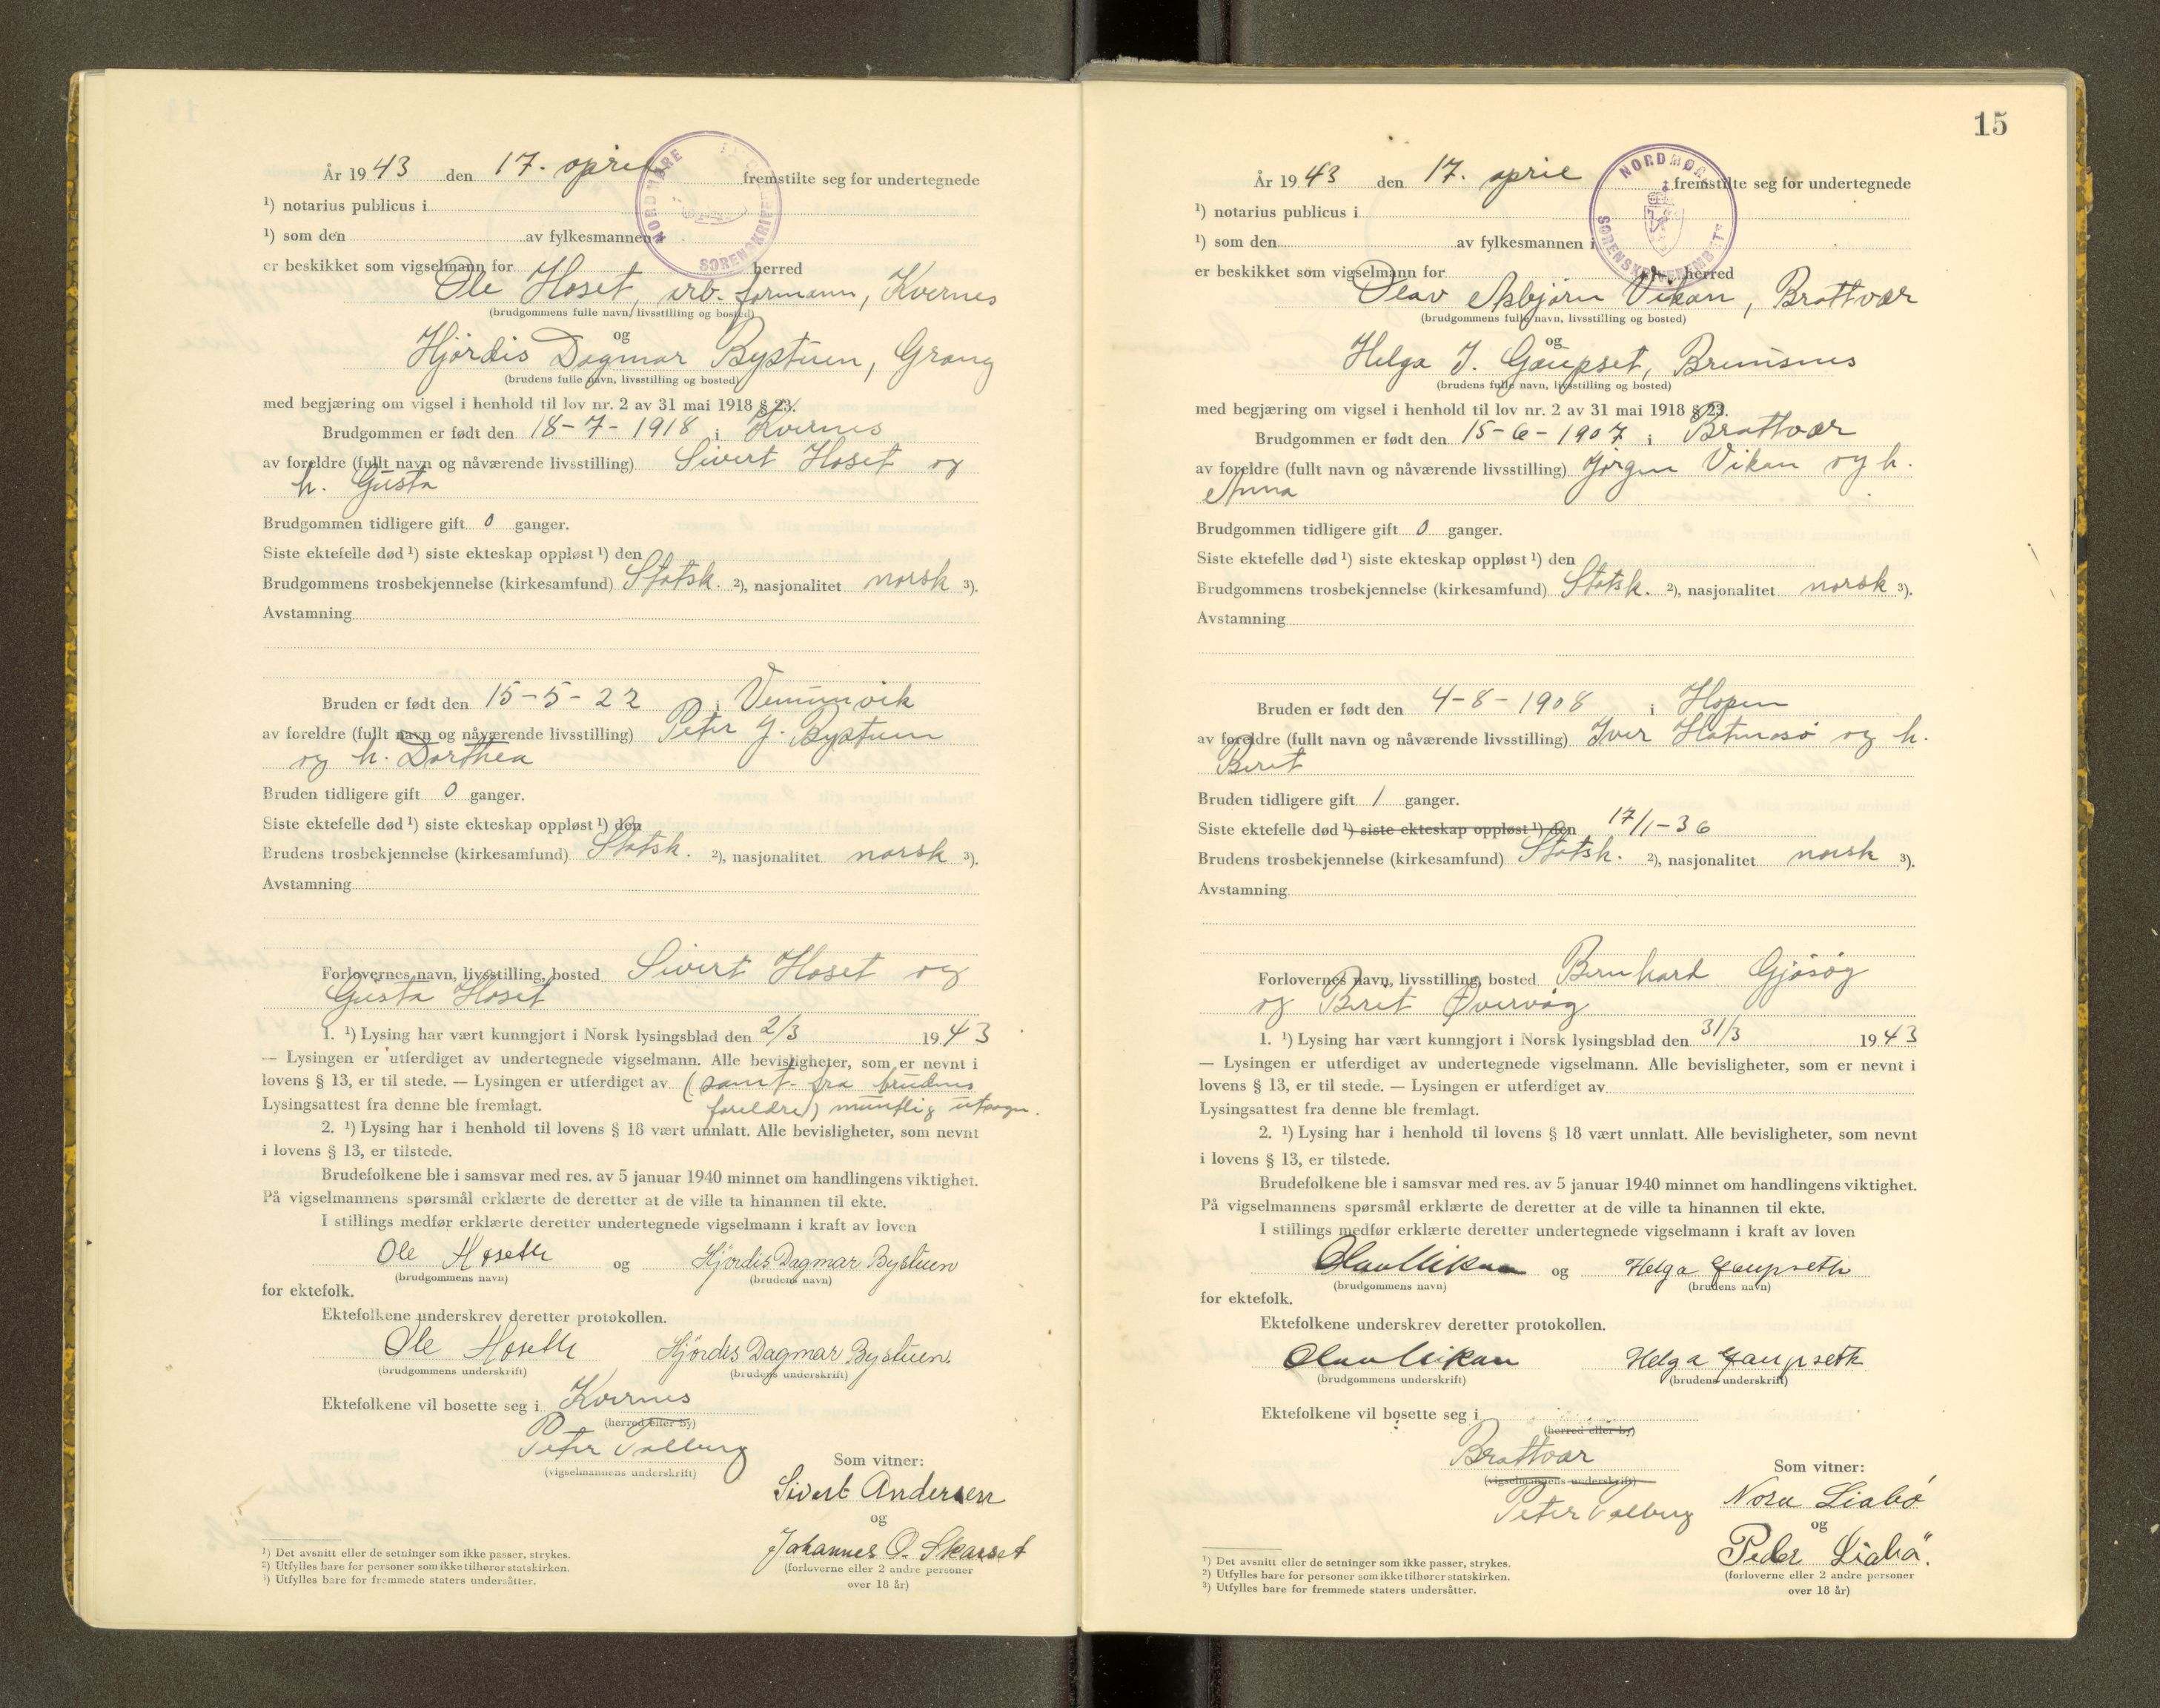 År 1943 den 17. april fremstilte seg for undertegnede
¹) notarius publicus i
¹) som den av fylkesmannen i
er beskikket som vigselmann for herred
Ole Hoset, arb. formann, Kvernes
(brudgommens fulle navn, livsstilling og bosted)
og
Hjørdis Dagmar Bystuen, Grong
(brudens fulle navn, livsstilling og bosted)
med begjæring om vigsel i henhold til lov nr. 2 av 31 mai 1918 § 23.
Brudgommen er født den 18-7-1918 i Kvernes
av foreldre (fullt navn og nåværende livsstilling) Sivert Hoset og
h. Gusta
Brudgommen tidligere gift 0 ganger.
Siste ektefelle død ¹) siste ekteskap oppløst ¹) den
Brudgommens trosbekjennelse (kirkesamfund) Statsk. ²), nasjonalitet norsk ³).
Avstamning
Bruden er født den 15-5-22 i Vemunvik
av foreldre (fullt navn og nåværende livsstilling) Peter J. Bystuen
og h. Dorthea
Bruden tidligere gift 0 ganger.
Siste ektefelle død ¹) siste ekteskap oppløst ¹) den
Brudens trosbekjennelse (kirkesamfund) Statsk. ²), nasjonalitet norsk ³).
Avstamning
Forlovernes navn, livsstilling, bosted Sivert Hoset og
Gusta Hoset
1. ¹) Lysing har vært kunngjort i Norsk lysingsblad den 2/3 1943
— Lysingen er utferdiget av undertegnede vigselmann. Alle bevisligheter, som er nevnt i
lovens § 13, er til stede. — Lysingen er utferdiget av (samt. fra brudens
Lysingsattest fra denne ble fremlagt. foreldre) muntlig
2. ¹) Lysing har i henhold til lovens § 18 vært unnlatt. Alle bevisligheter, som nevnt
i lovens § 13, er tilstede.
Brudefolkene ble i samsvar med res. av 5 januar 1940 minnet om handlingens viktighet.
På vigselmannens spørsmål erklærte de deretter at de ville ta hinannen til ekte.
I stillings medfør erklærte deretter undertegnede vigselmann i kraft av loven
Ole Hoseth og Hjördis Dagmar Bystuen
(brudgommens navn) (brudens navn)
for ektefolk.
Ektefolkene underskrev deretter protokollen.
Ole Hoseth Hjördis Dagmar Bystuen.
(brudgommens underskrift) (brudens underskrift)
Ektefolkene vil bosette seg i Kvernes
(herred eller by)
Peter Talberg
(vigselmannens underskrift)
Som vitner:
Sivert Andersen
og
Johannes O. Skarset
(forloverne eller 2 andre personer
over 18 år)
¹) Det avsnitt eller de setninger som ikke passer, strykes.
²) Utfylles bare for personer som ikke tilhører statskirken.
³) Utfylles bare for fremmede staters undersåtter.
NORDMØRE
SORENSKRIVER
15
År 1943 den 17. april fremstilte seg for undertegnede
¹) notarius publicus i
¹) som den av fylkesmannen i
er beskikket som vigselmann for herred
Olav Asbjørn Vikan, Brattvær
(brudgommens fulle navn, livsstilling og bosted)
og
Helga J. Gaupset, Bremsnes
(brudens fulle navn, livsstilling og bosted)
med begjæring om vigsel i henhold til lov nr. 2 av 31 mai 1918 § 23.
Brudgommen er født den 15-6-1907 i Brattvær
av foreldre (fullt navn og nåværende livsstilling) Jørgen Vikan og h.
Anna
Brudgommen tidligere gift 0 ganger.
Siste ektefelle død ¹) siste ekteskap oppløst ¹) den
Brudgommens trosbekjennelse (kirkesamfund) Statsk. ²), nasjonalitet norsk ³).
Avstamning
Bruden er født den 4-8-1908 i Hopen
av foreldre (fullt navn og nåværende livsstilling) Iver Hatmosø og h.
Beret
Bruden tidligere gift 1 ganger.
Siste ektefelle død ¹) siste ekteskap oppløst ¹) den 17/1-36
Brudens trosbekjennelse (kirkesamfund) Statsk. ²), nasjonalitet norsk ³).
Avstamning
Forlovernes navn, livsstilling, bosted Bernhard Gjøsøy
og Beret Øvervåg
1. ¹) Lysing har vært kunngjort i Norsk lysingsblad den 31/3 1943
— Lysingen er utferdiget av undertegnede vigselmann. Alle bevisligheter, som er nevnt i
lovens § 13, er til stede. — Lysingen er utferdiget av
Lysingsattest fra denne ble fremlagt.
2. ¹) Lysing har i henhold til lovens § 18 vært unnlatt. Alle bevisligheter, som nevnt
i lovens § 13, er tilstede.
Brudefolkene ble i samsvar med res. av 5 januar 1940 minnet om handlingens viktighet.
På vigselmannens spørsmål erklærte de deretter at de ville ta hinannen til ekte.
I stillings medfør erklærte deretter undertegnede vigselmann i kraft av loven
Olav Vikan og Helga Gaupseth
(brudgommens navn) (brudens navn)
for ektefolk.
Ektefolkene underskrev deretter protokollen.
Olav Vikan Helga Gaupseth
(brudgommens underskrift) (brudens underskrift)
Ektefolkene vil bosette seg i
(herred eller by)
Brattvær
(vigselmannens underskrift)
Peter Talberg
Som vitner:
Nora Liabö
og
Peder Liabö.
(forloverne eller 2 andre personer
over 18 år)
¹) Det avsnitt eller de setninger som ikke passer, strykes.
²) Utfylles bare for personer som ikke tilhører statskirken.
³) Utfylles bare for fremmede staters undersåtter.
NORDMØRE
SORENSKRIVEREMBETE